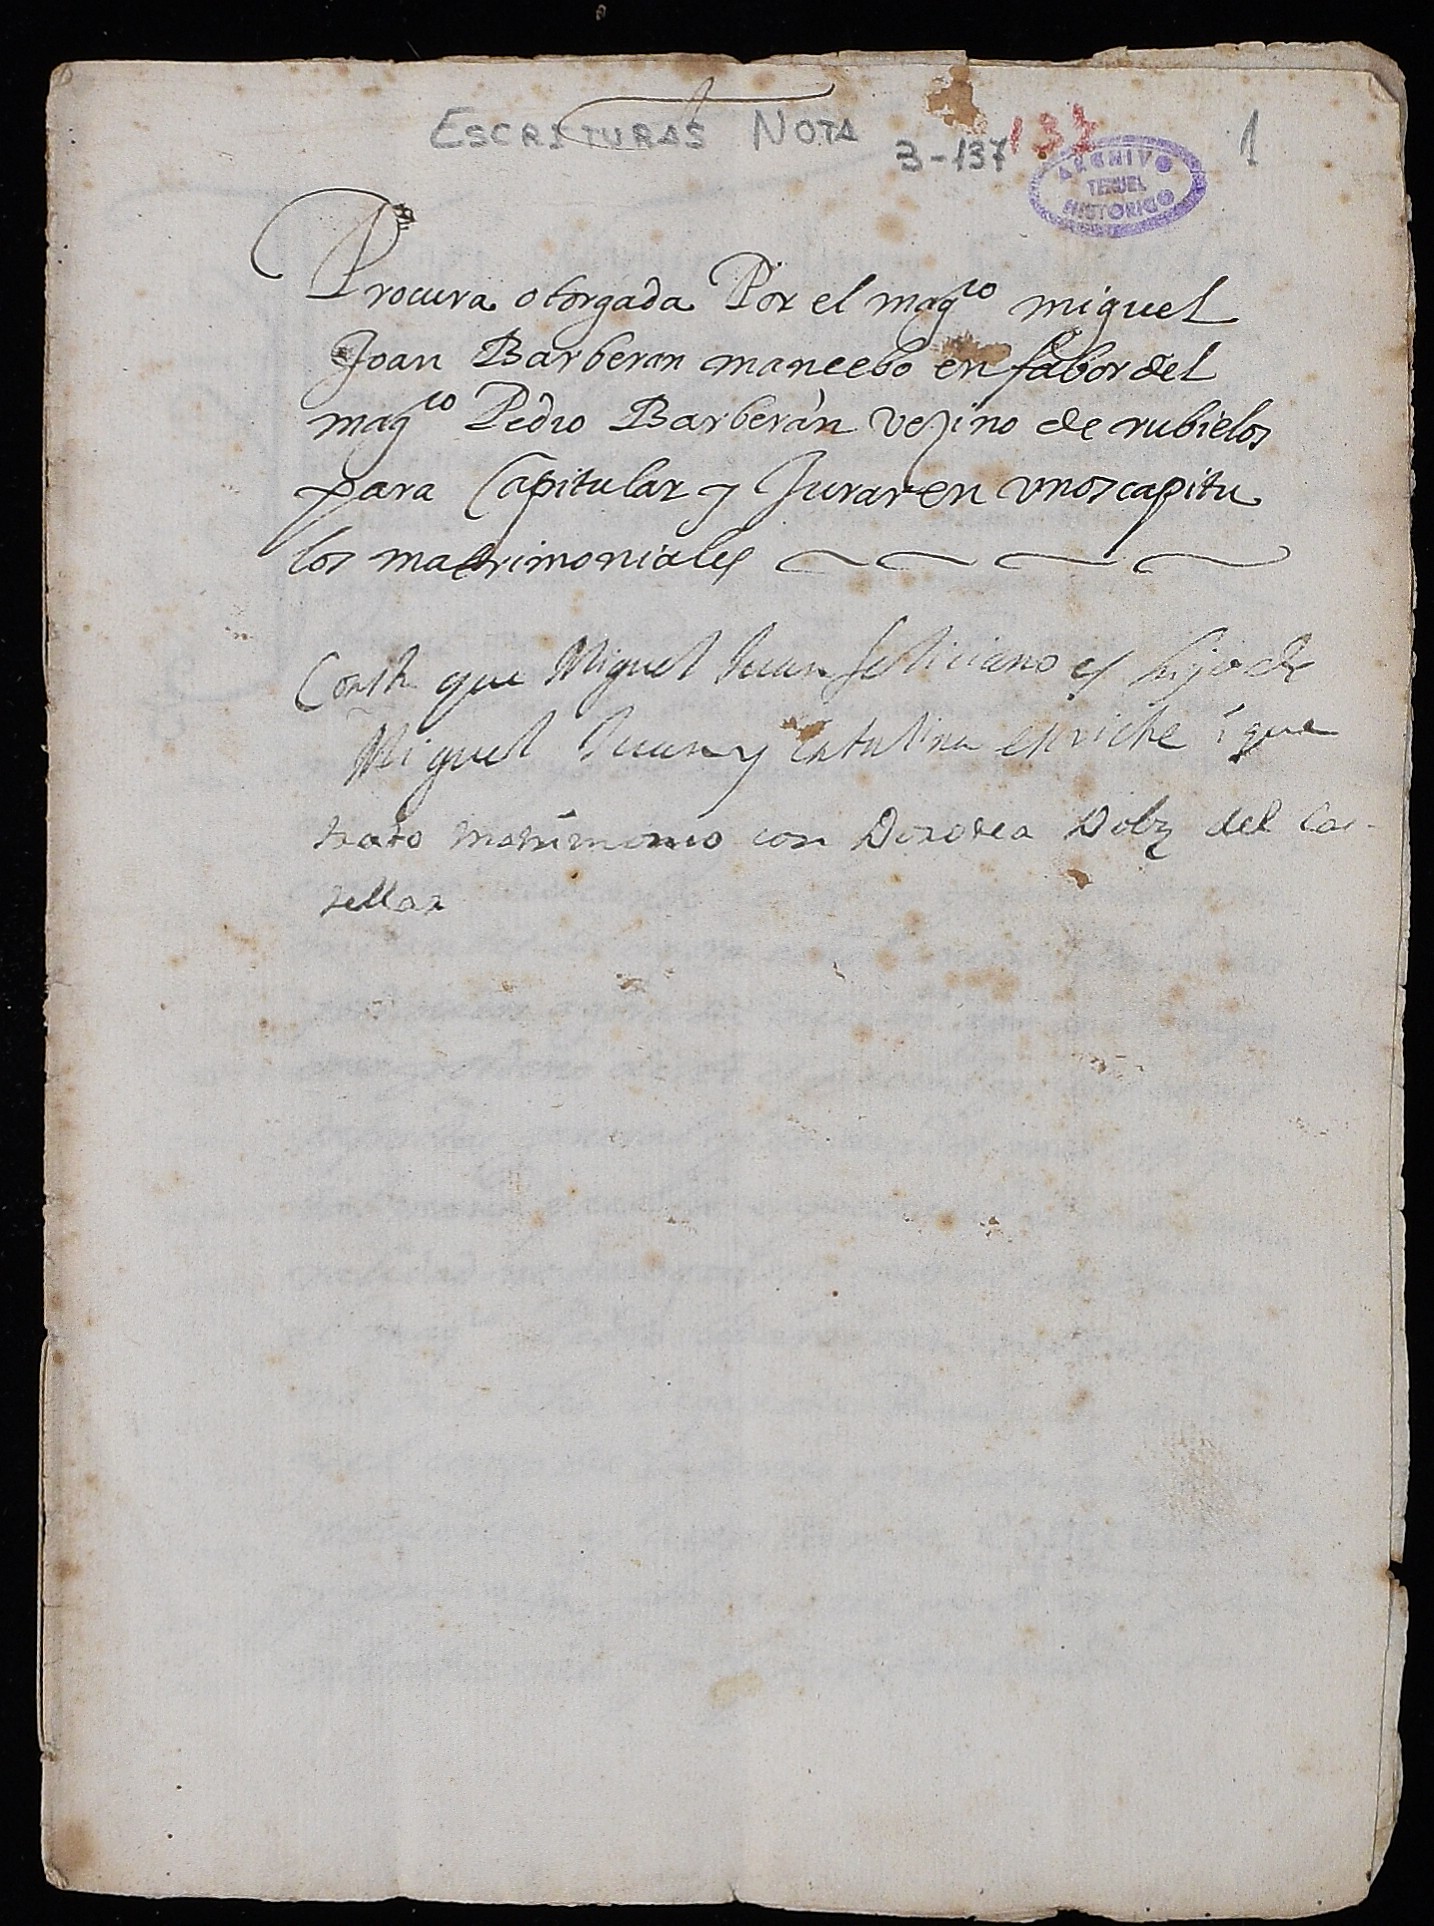 ESCRITURAS NOTA
3-137
133
1
ARCHIVO
TERUEL
HISTORICO
Procura otorgada Por el magco miguel
Joan Barberan mancebo en fabor del
magco Pedro Barberàn vezino de rubielos
para Capitular y Jurar en unos capitu
los matrimoniales
Consta que Miguel Juan feliciano es hijo de
Miguel Juan y Catalina enriche i que
trato matrimonio con Dorotea Dolz del Cas-
tellar